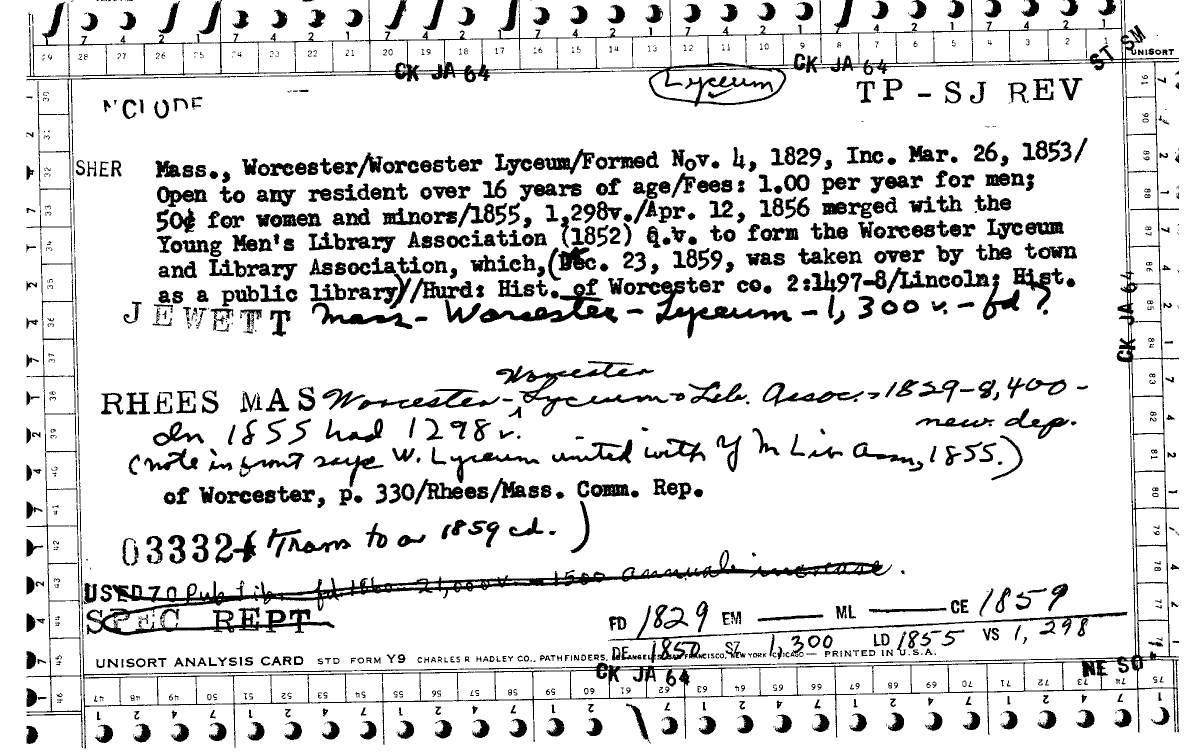 7 4 2 1 7 4 2 1 7 4 2 1 7 4 2 1 7 4 2 1 7 4 2 1 7 4 2 1
29 28 27 26 25 24 23 22 21 20 19 18 17 16 15 14 13 12 11 10 9 8 7 6 5 4 3 2 1 UNISORT
CK JA 64 CK JA 64 ST SM
Lyceum TP - SJ REV
SHER Mass., Worcester/Worcester Lyceum/Formed Nov. 4, 1829, Inc. Mar. 26, 1853/
Open to any resident over 16 years of age/Fees: 1.00 per year for men;
50¢ for women and minors/1855, 1,298v./Apr. 12, 1856 merged with the
Young Men's Library Association (1852) q.v. to form the Worcester Lyceum
and Library Association, which, (Dec. 23, 1859, was taken over by the town
as a public library)/Hurd: Hist. of Worcester co. 2:1497-8/Lincoln; Hist.
JEWETT Mass - Worcester - Lyceum - 1,300 v. - fd ?
CK JA 64
Worcester
RHEES MAS Worcester - Lyceum & Lib. Assoc. - 1829 - 8,400 -
new. dep.
In 1855 had 1298 v.
(note in front says W. Lyceum united with Y M Lib Assn, 1855.)
of Worcester, p. 330/Rhees/Mass. Comm. Rep.
03332 (Trans to a 1859 cd.)
USED 70 Pub Lib. fd 1860 - 21,000 v - 1500 annual increase.
SPEC REPT
FD 1829 EM ML CE 1859
DE 1850 SZ 1,300 LD 1855 VS 1,298
UNISORT ANALYSIS CARD STD FORM Y9 CHARLES R HADLEY CO., PATHFINDERS, LOS ANGELES SAN FRANCISCO, NEW YORK CHICAGO — PRINTED IN U.S.A.
CK JA 64 NE SO